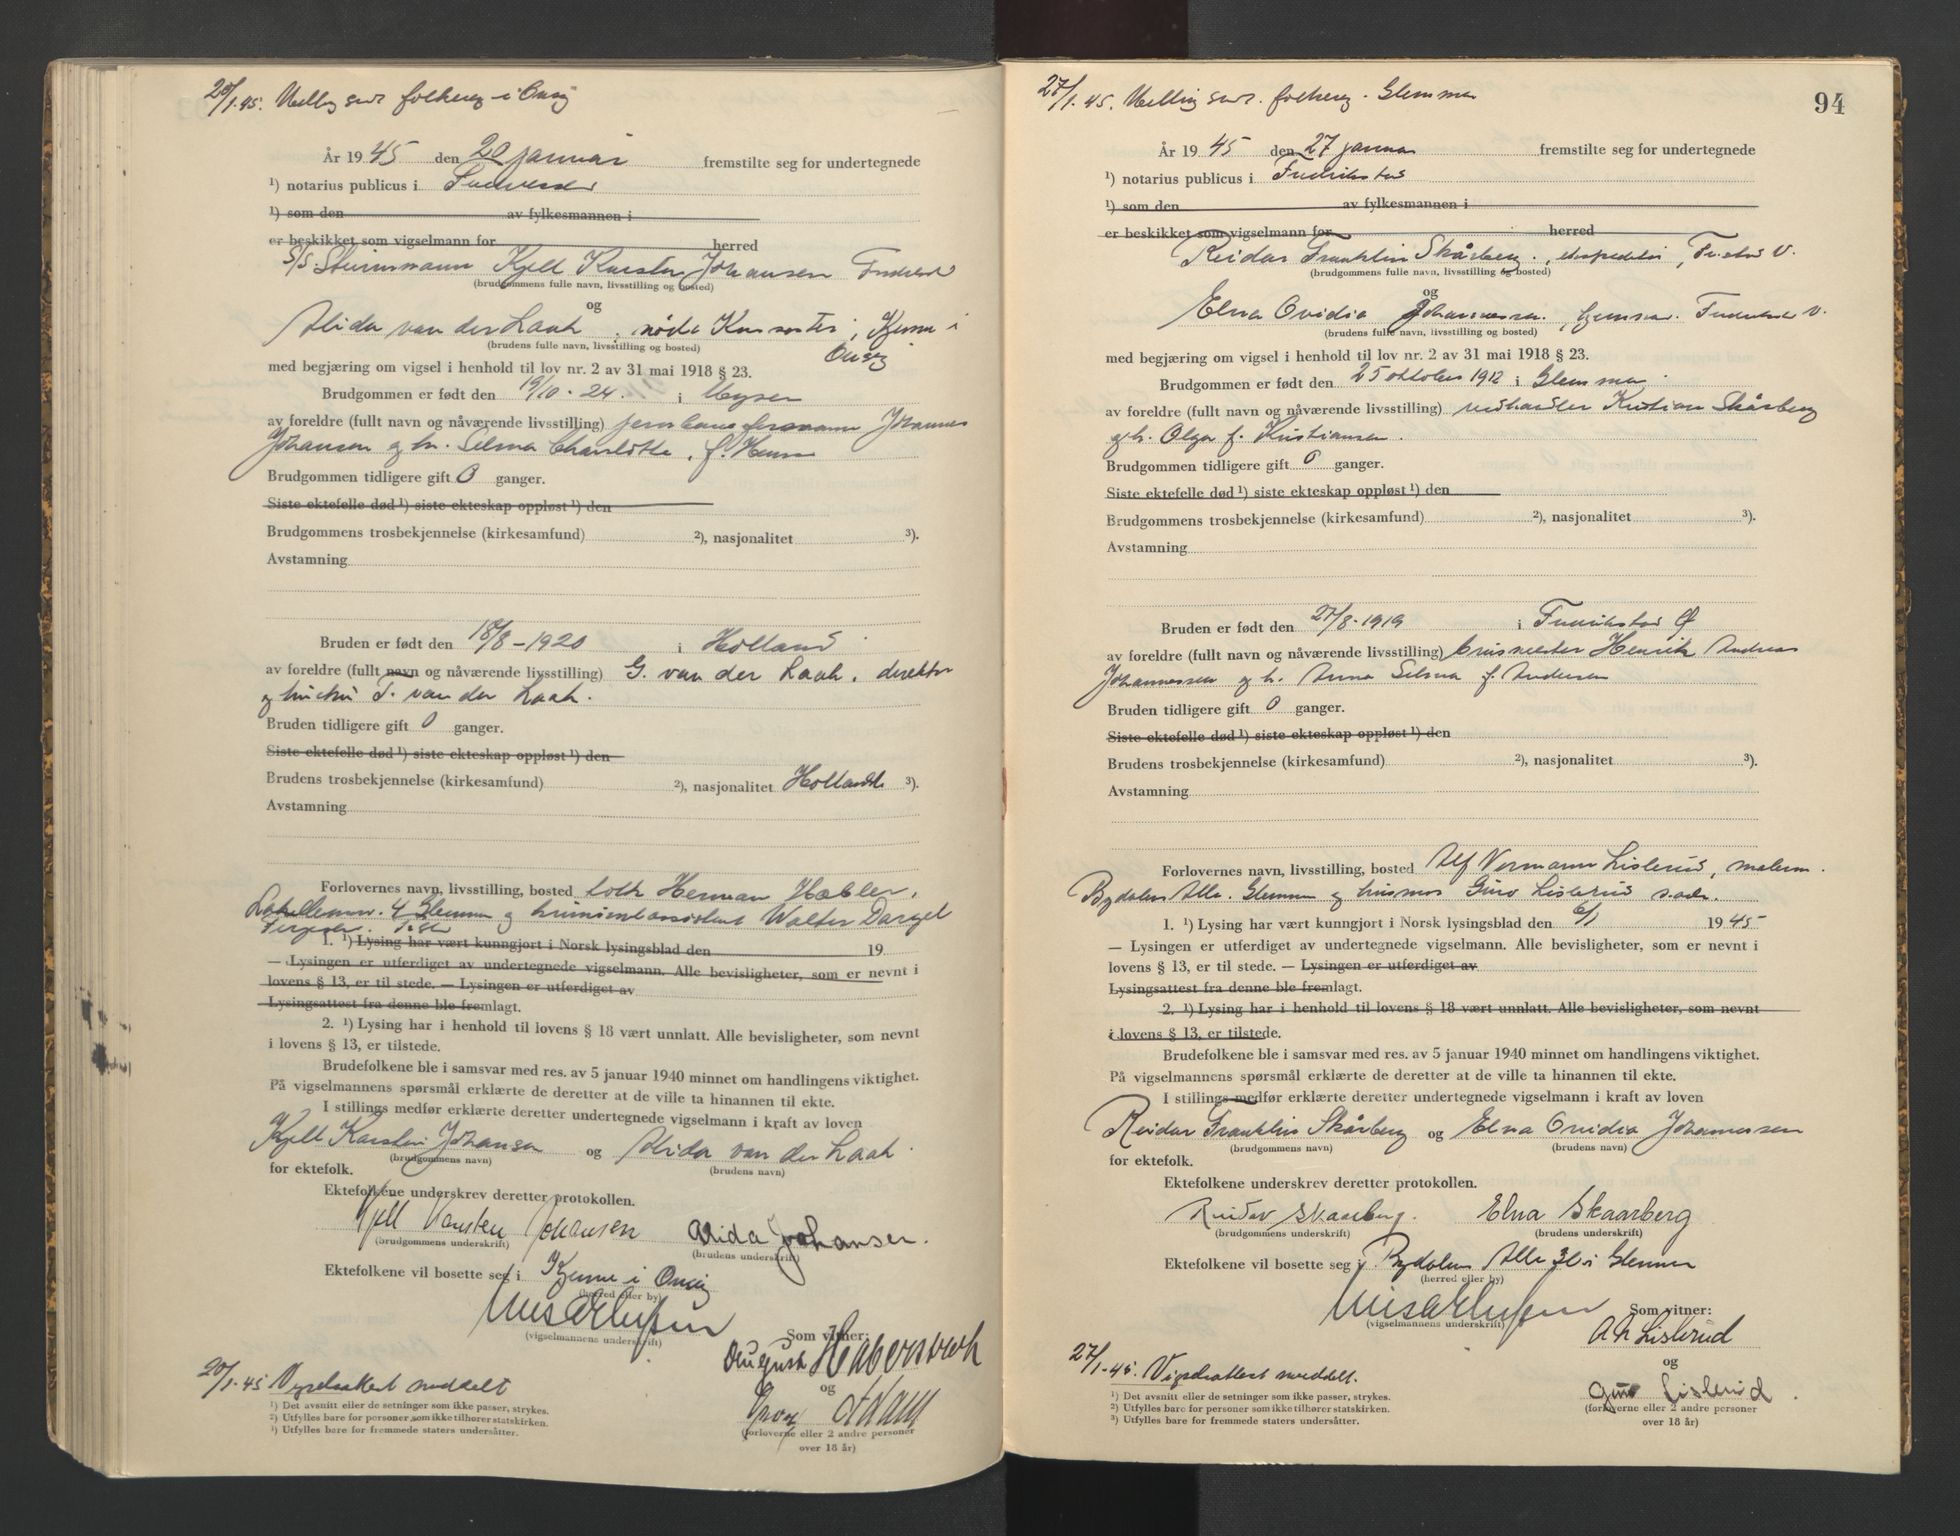 20/1.45. folkereg i Onsøy
År 1945 den 20 januar fremstilte seg for undertegnede
¹) notarius publicus i
¹) som den av fylkesmannen i
er beskikket som vigselmann for herred
Kjell Karsten Johansen
(brudgommens fulle navn, livsstilling og bosted)
og
Alida van der Laak,
(brudens fulle navn, livsstilling og bosted)
Onsøy
med begjæring om vigsel i henhold til lov nr. 2 av 31 mai 1918 § 23.
Brudgommen er født den 19/10-24. i Mysen
av foreldre (fullt navn og nåværende livsstilling) Johannes
Johansen og h. Selma Charlotte, f.
Brudgommen tidligere gift 0 ganger.
Siste ektefelle død ¹) siste ekteskap oppløst ¹) den
Brudgommens trosbekjennelse (kirkesamfund) ²), nasjonalitet ³).
Avstamning
Bruden er født den 18/8-1920 i Holland
av foreldre (fullt navn og nåværende livsstilling) G. van der Laak, direktør
og hustru T. van der Laak.
Bruden tidligere gift 0 ganger.
Siste ektefelle død ¹) siste ekteskap oppløst ¹) den
Brudens trosbekjennelse (kirkesamfund) ²), nasjonalitet Hollandsk ³).
Avstamning
Forlovernes navn, livsstilling, bosted Herman
Glemmen og Walter
1. ¹) Lysing har vært kunngjort i Norsk lysingsblad den 19
— Lysingen er utferdiget av undertegnede vigselmann. Alle bevisligheter, som er nevnt i
lovens § 13, er til stede. — Lysingen er utferdiget av
Lysingsattest fra denne ble fremlagt.
2. ¹) Lysing har i henhold til lovens § 18 vært unnlatt. Alle bevisligheter, som nevnt
i lovens § 13, er tilstede.
Brudefolkene ble i samsvar med res. av 5 januar 1940 minnet om handlingens viktighet.
På vigselmannens spørsmål erklærte de deretter at de ville ta hinannen til ekte.
I stillings medfør erklærte deretter undertegnede vigselmann i kraft av loven
Kjell Karsten Johansen og Alida van der Laak
(brudgommens navn) (brudens navn)
for ektefolk.
Ektefolkene underskrev deretter protokollen.
Kjell Karsten Johansen Alida Johansen.
(brudgommens underskrift) (brudens underskrift)
Ektefolkene vil bosette seg i i Onsøy
(herred eller by)
(vigselmannens underskrift)
Som vitner:
August
og
(forloverne eller 2 andre personer
over 18 år)
20/1-45 Vigselsattest meddelt
¹) Det avsnitt eller de setninger som ikke passer, strykes.
²) Utfylles bare for personer som ikke tilhører statskirken.
³) Utfylles bare for fremmede staters undersåtter.
27/1.45. folkereg. Glemmen
94
År 1945 den 27 januar fremstilte seg for undertegnede
¹) notarius publicus i Fredrikstad
¹) som den av fylkesmannen i
er beskikket som vigselmann for herred
Reidar Franklin Skårberg, ekspeditør,
(brudgommens fulle navn, livsstilling og bosted)
og
Elna Ovidia Johannessen,
(brudens fulle navn, livsstilling og bosted)
med begjæring om vigsel i henhold til lov nr. 2 av 31 mai 1918 § 23.
Brudgommen er født den 25 oktober 1912 i Glemmen
av foreldre (fullt navn og nåværende livsstilling) vedhandler Kristian Skårberg
og h. Olga f. Kristiansen.
Brudgommen tidligere gift 0 ganger.
Siste ektefelle død ¹) siste ekteskap oppløst ¹) den
Brudgommens trosbekjennelse (kirkesamfund) ²), nasjonalitet ³).
Avstamning
Bruden er født den 27/8-1919 i Fredrikstad Ø
av foreldre (fullt navn og nåværende livsstilling) Henrik Andreas
Johannessen og h. Anna Selma f. Andersen
Bruden tidligere gift 0 ganger.
Siste ektefelle død ¹) siste ekteskap oppløst ¹) den
Brudens trosbekjennelse (kirkesamfund) ²), nasjonalitet ³).
Avstamning
Forlovernes navn, livsstilling, bosted Alf Normann Lislerud, malerm.
Bydalen Alle. Glemmen og husmor Guro Lislerud
1. ¹) Lysing har vært kunngjort i Norsk lysingsblad den 6/1 1945
— Lysingen er utferdiget av undertegnede vigselmann. Alle bevisligheter, som er nevnt i
lovens § 13, er til stede. — Lysingen er utferdiget av
Lysingsattest fra denne ble fremlagt.
2. ¹) Lysing har i henhold til lovens § 18 vært unnlatt. Alle bevisligheter, som nevnt
i lovens § 13, er tilstede.
Brudefolkene ble i samsvar med res. av 5 januar 1940 minnet om handlingens viktighet.
På vigselmannens spørsmål erklærte de deretter at de ville ta hinannen til ekte.
I stillings medfør erklærte deretter undertegnede vigselmann i kraft av loven
Reidar Franklin Skårberg og Elna Ovidia Johannessen
(brudgommens navn) (brudens navn)
for ektefolk.
Ektefolkene underskrev deretter protokollen.
Reidar Skaarberg. Elna Skaarberg
(brudgommens underskrift) (brudens underskrift)
Ektefolkene vil bosette seg i Bydalen Alle 30 i Glemmen
(herred eller by)
(vigselmannens underskrift)
Som vitner:
A N Lislerud
og
Guro Lislerud.
(forloverne eller 2 andre personer
over 18 år)
27/1-45. Vigselsattest meddelt.
¹) Det avsnitt eller de setninger som ikke passer, strykes.
²) Utfylles bare for personer som ikke tilhører statskirken.
³) Utfylles bare for fremmede staters undersåtter.